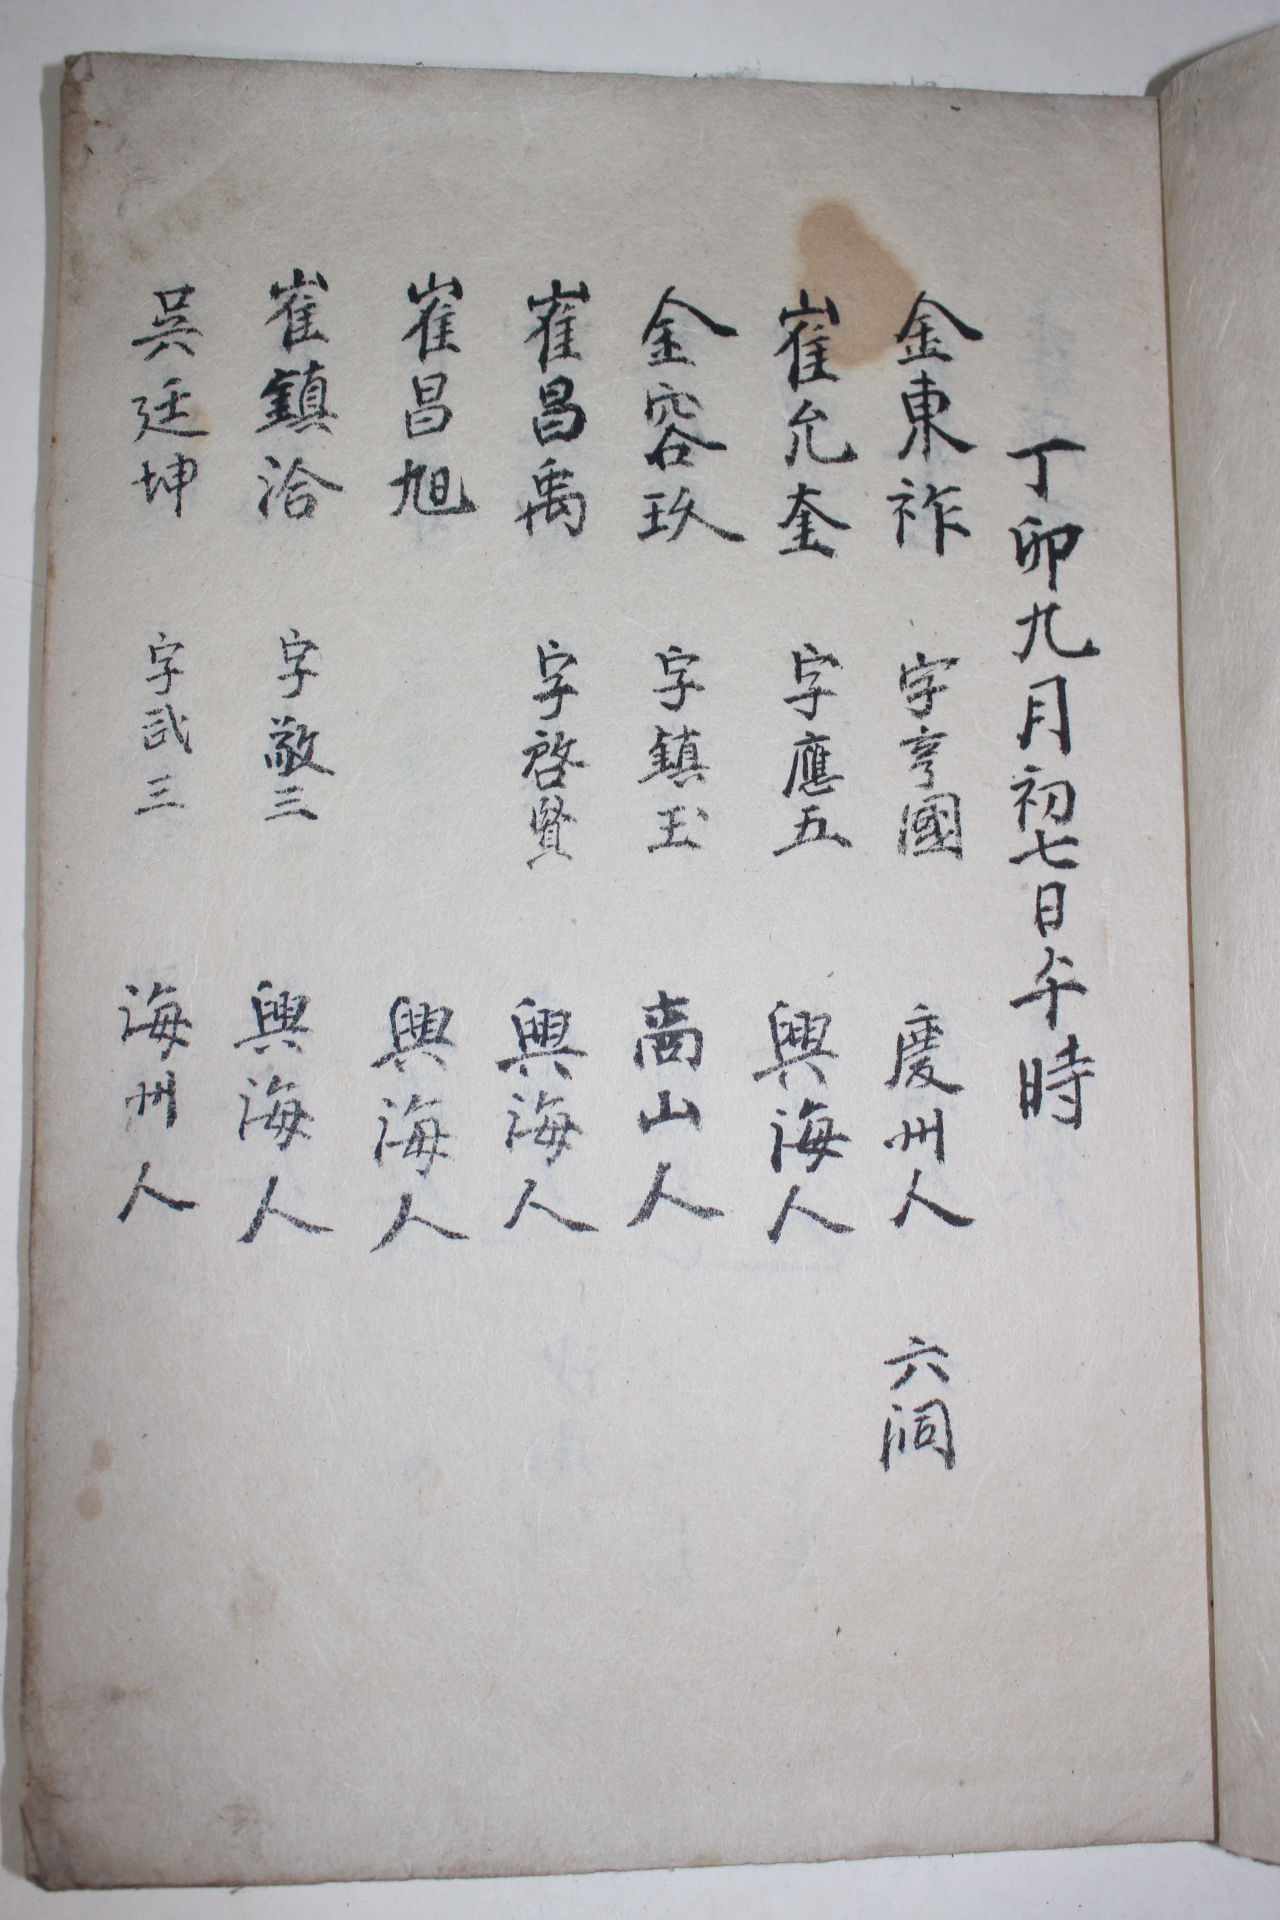 丁卯九月初七日午時
金東祚 字亨國 慶州人 六洞
崔允奎 字應五 興海人
金容玖 字鎮玉 啇山人
崔昌禹 字啓賢 興海人
崔昌旭 興海人
崔鎮洽 字敬三 興海人
吳廷坤 字武三 海州人